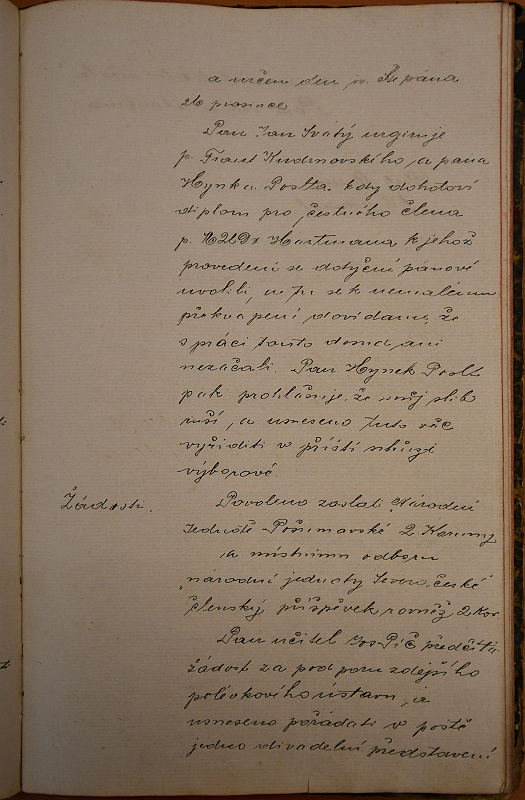 a určen den sv. Štěpána
26 prosince
Pan Jan Svatý urguje
p. Frant Kudrnovského a pana
Hynka Poslta kdy dohotoví
diplom pro čestného člena
p. MUDr Hartmana, k jehož
provedení se dotyční pánové
uvolili, a tu se k nemalému
překvapení dovídáme, že
s prací touto doma ani
nezačali. Pan Hynek Poslt
pak prohlašuje, že svůj slib
ruší, a usneseno tuto věc
vyříditi v příští schůzi
výborové.
Žádosti. Povoleno zaslati Národní
Jednotě Pošumavské 2 Koruny
a místnímu odboru
národní jednoty Severočeské
členský příspěvek rovněž 2 Kor.
Pan učitel Jos Píč předčítá
žádost za podporu zdejšího
polévkového ústavu, a
usneseno pořádati v postě
jedno divadelní představení